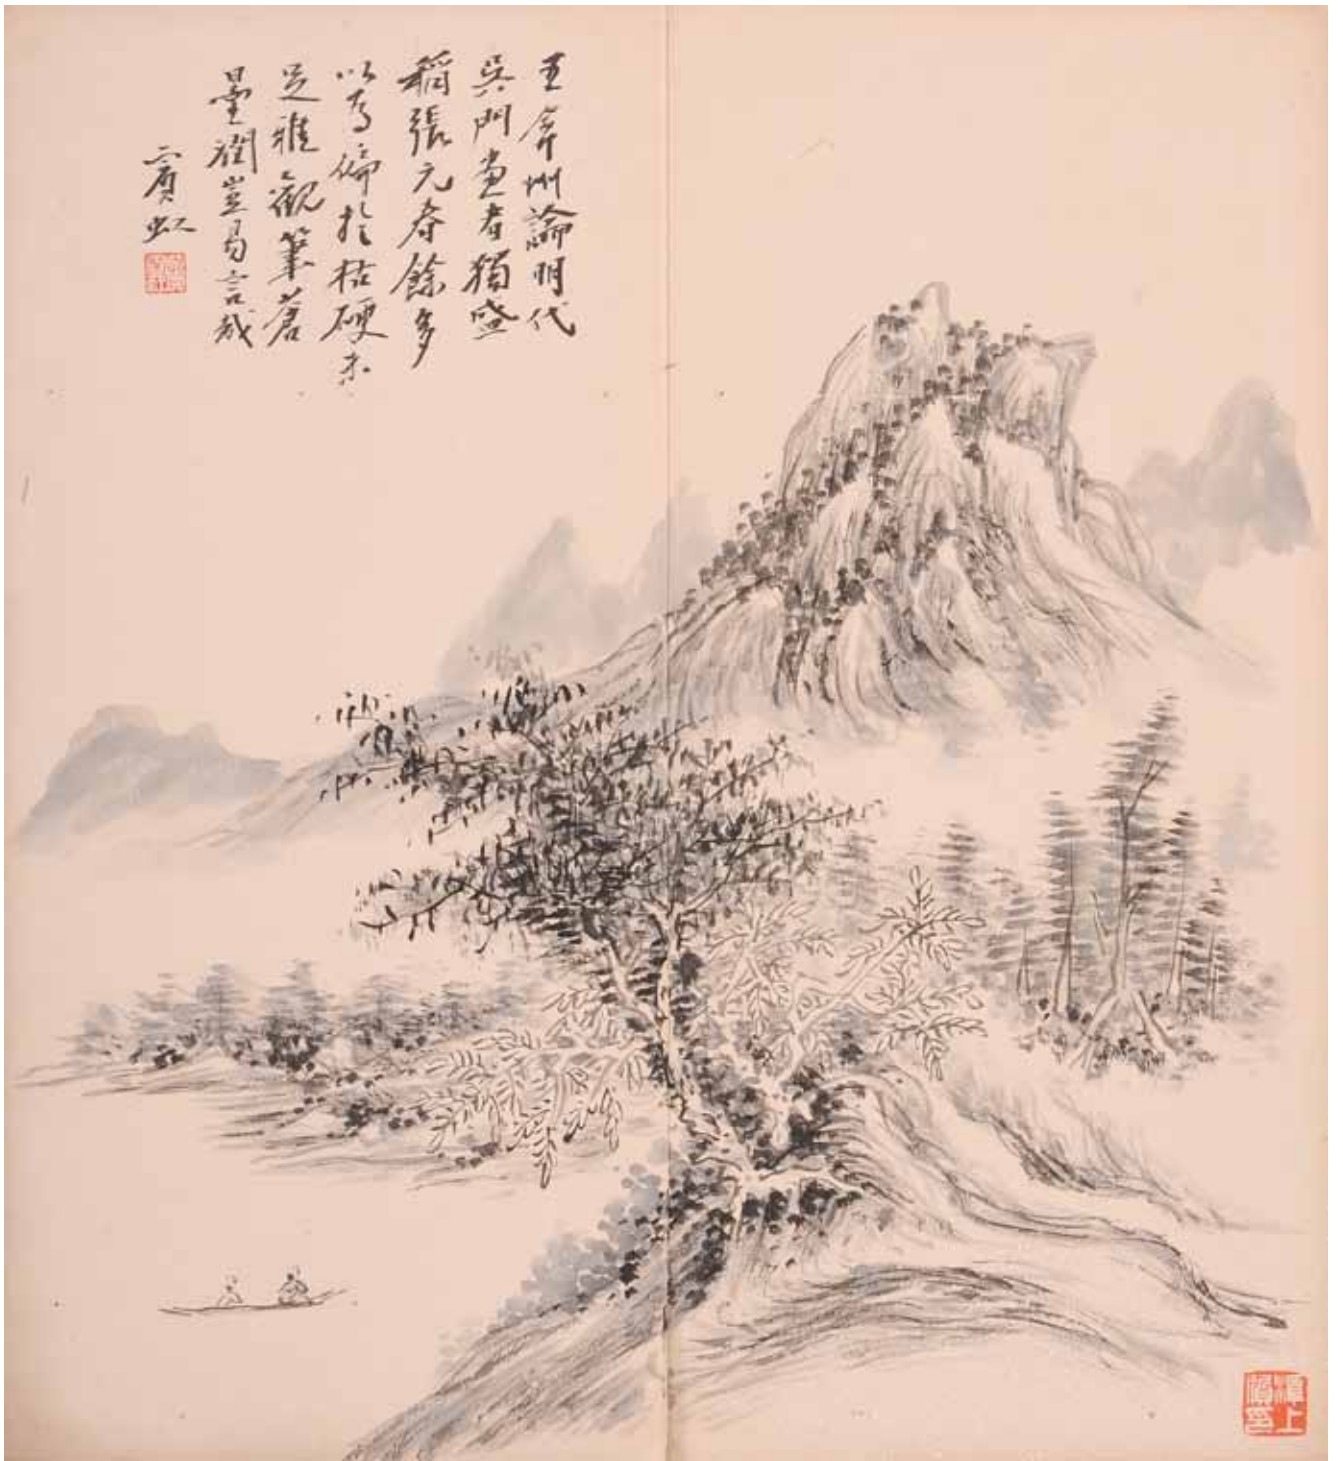 王弇州論明代
吳門畫者獨盛
稱張元春餘多
以為偏於枯硬未
足雅觀筆蒼
墨潤豈易言哉
賓虹